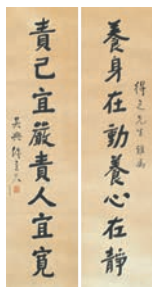 養身在動養心在靜
得之先生雅屬
責己宜嚴責人宜寬
吳興